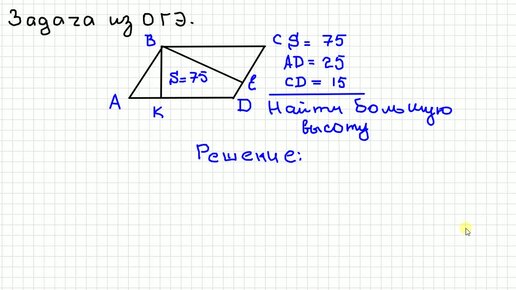 Задача из ОГЭ.
B
C
S = 75
AD = 25
S = 75
E
CD = 15
A
K
D
Найти большую
высоту
Решение: